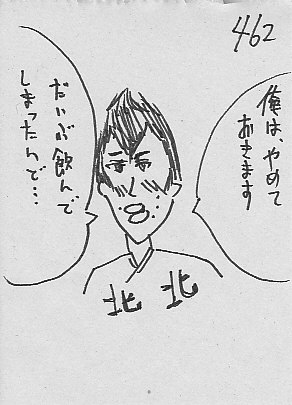 462
俺は、やめて
おきます
だいぶ飲んで
しまったんで…
北 北